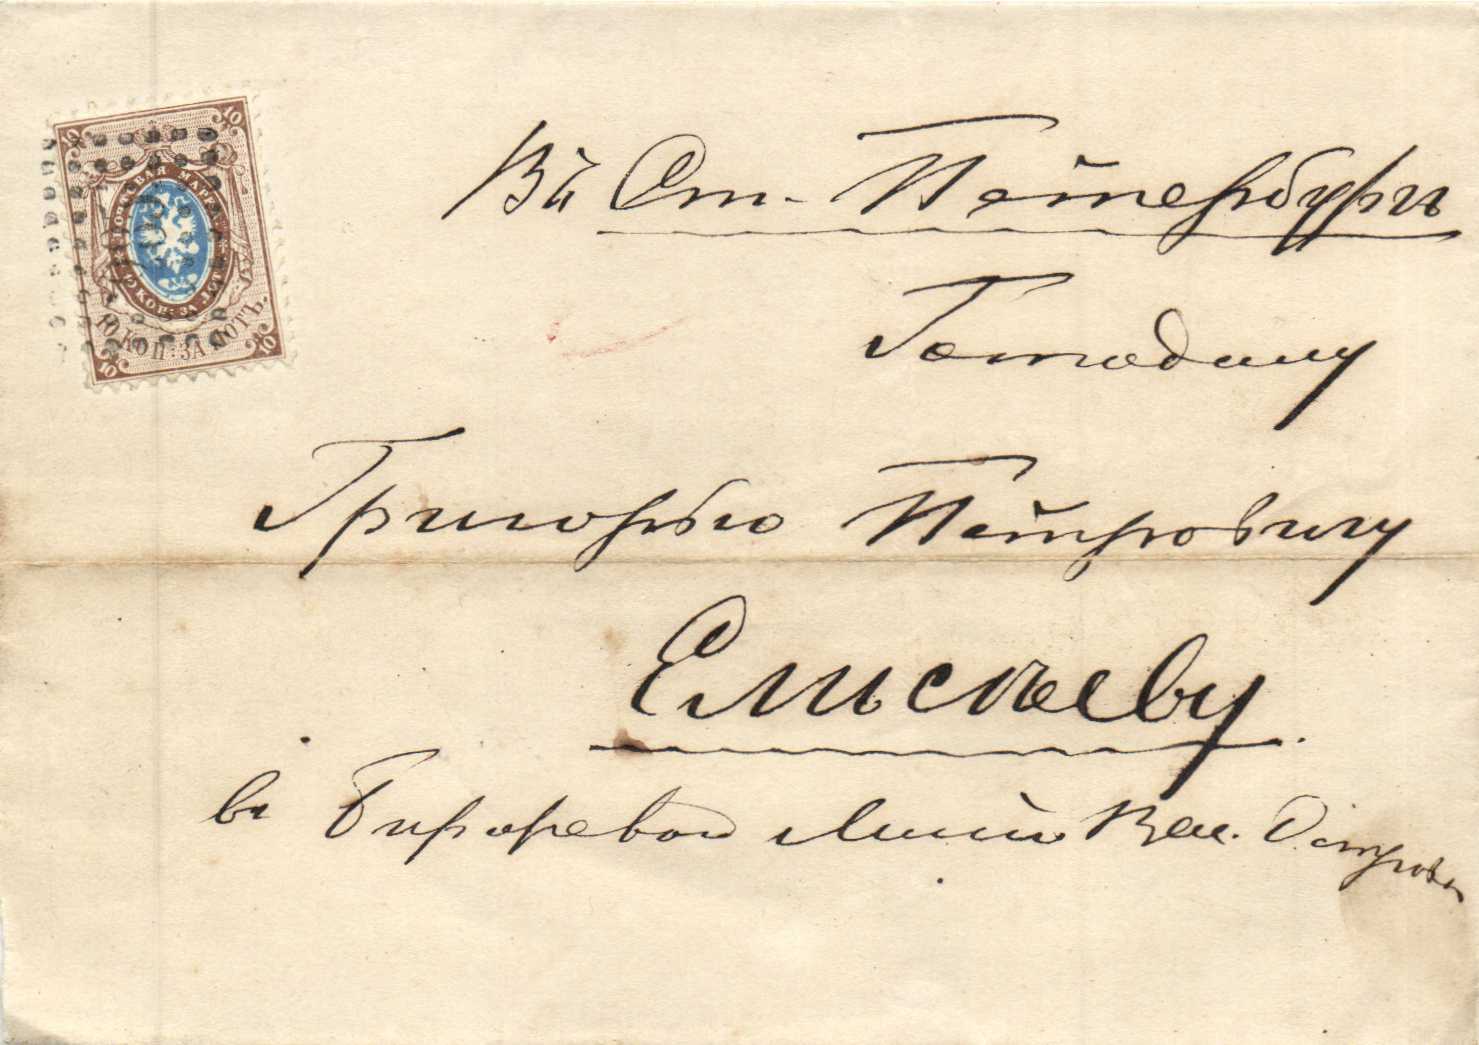 10
10
ПОЧТОВАЯ МАРКА
10 КОП. ЗА ЛОТЪ
10 КОП: ЗА ЛОТЪ.
10
10
Въ Ст. Петербургъ
Господину
Григорью Петровичу
Елисѣеву
въ Биржевой Линіи Вас. Острова